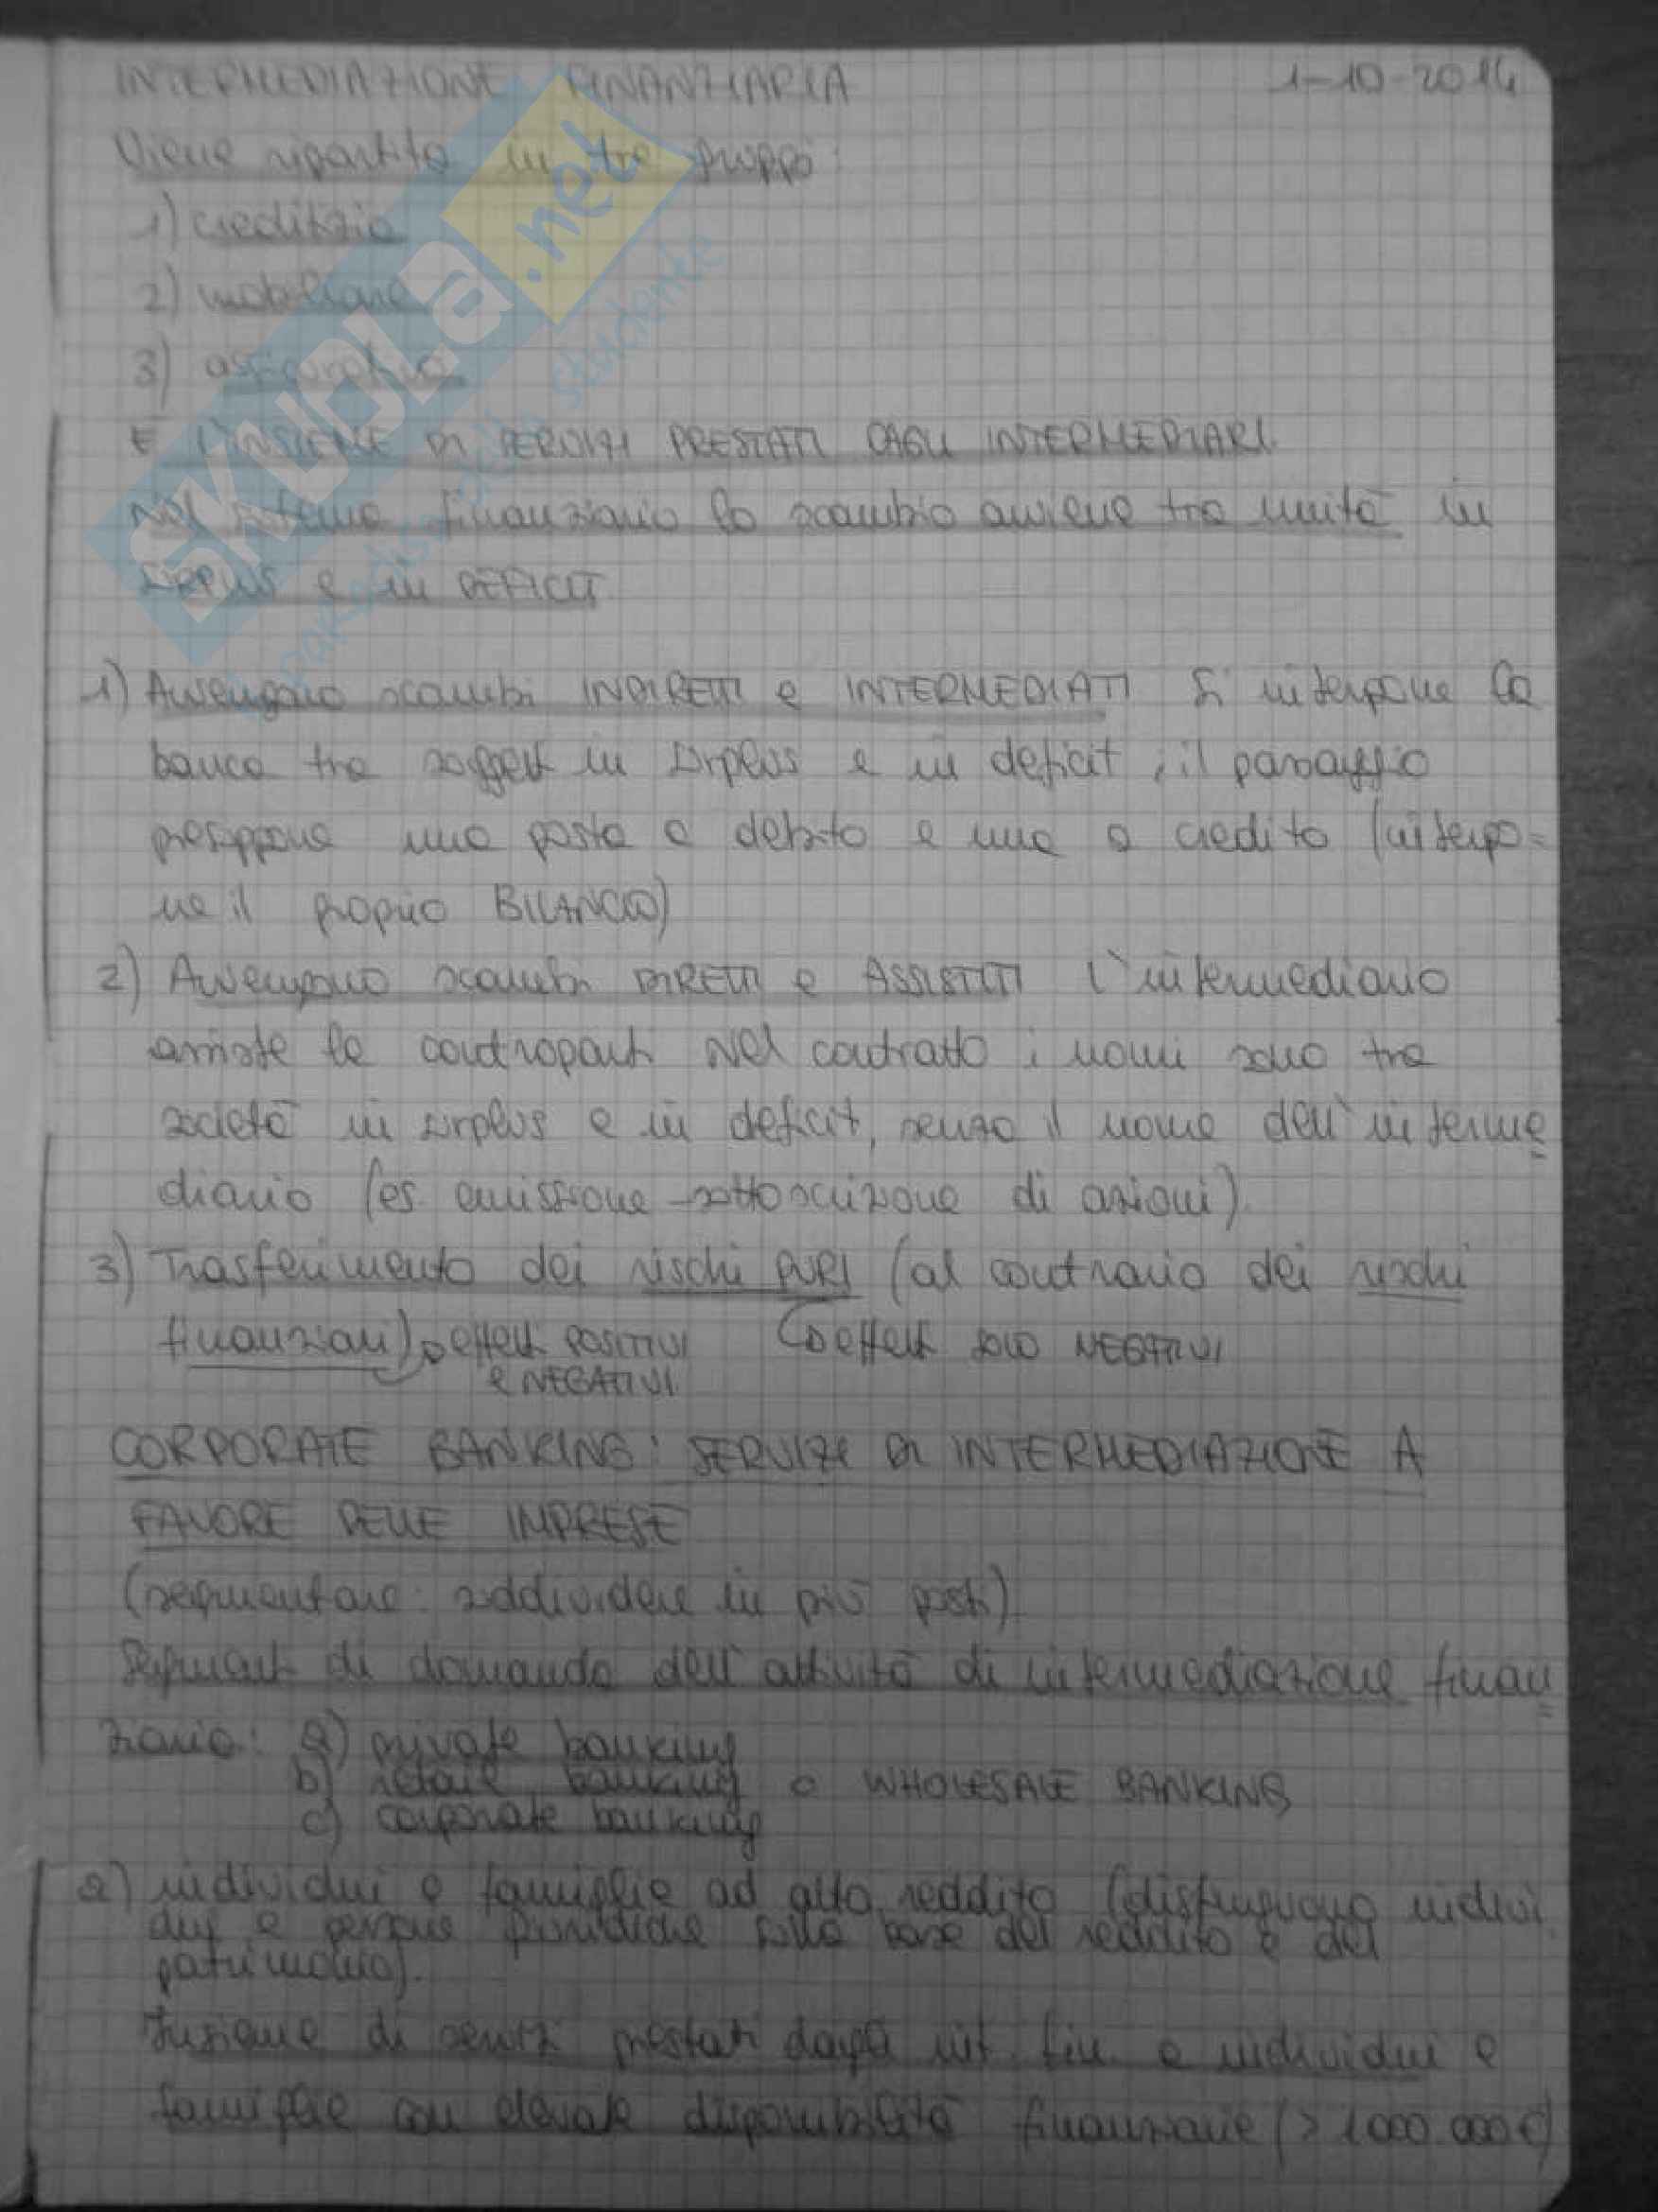 INTERMEDIAZIONE FINANZIARIA 1-10-2014
Viene ripartita in tre gruppi:
1) creditizia
2) mobiliare
3) assicurativa
È L'INSIEME DI SERVIZI PRESTATI DAGLI INTERMEDIARI.
Nel sistema finanziario lo scambio avviene tra unità in
SURPLUS e in DEFICIT
1) Avvengono scambi INDIRETTI e INTERMEDIATI Si interpone la
banca tra soggetti in surplus e in deficit; il passaggio
presuppone una posta a debito e una a credito (interpo=
ne il proprio BILANCIO)
2) Avvengono scambi DIRETTI e ASSISTITI l'intermediario
assiste le controparti Nel contratto i nomi sono tra
società in surplus e in deficit, senza il nome dell'interme
diario (es. emissione-sottoscrizione di azioni).
3) Trasferimento dei rischi PURI (al contrario dei rischi
finanziari) effetti POSITIVI effetti solo NEGATIVI
e NEGATIVI
CORPORATE BANKING: SERVIZI DI INTERMEDIAZIONE A
FAVORE DELLE IMPRESE
(segmentare: suddividere in più parti)
Segmenti di domanda dell'attività di intermediazione finan
ziaria: a) private banking
b) retail banking o WHOLESALE BANKING
c) corporate banking
a) individui e famiglie ad alto reddito (distinguono indivi
dui e persone giuridiche sulla base del reddito e del
patrimonio).
Insieme di servizi prestati dagli int. fin. a individui e
famiglie con elevate disponibilità finanziarie (>1000.000€)
SKUOLA.net